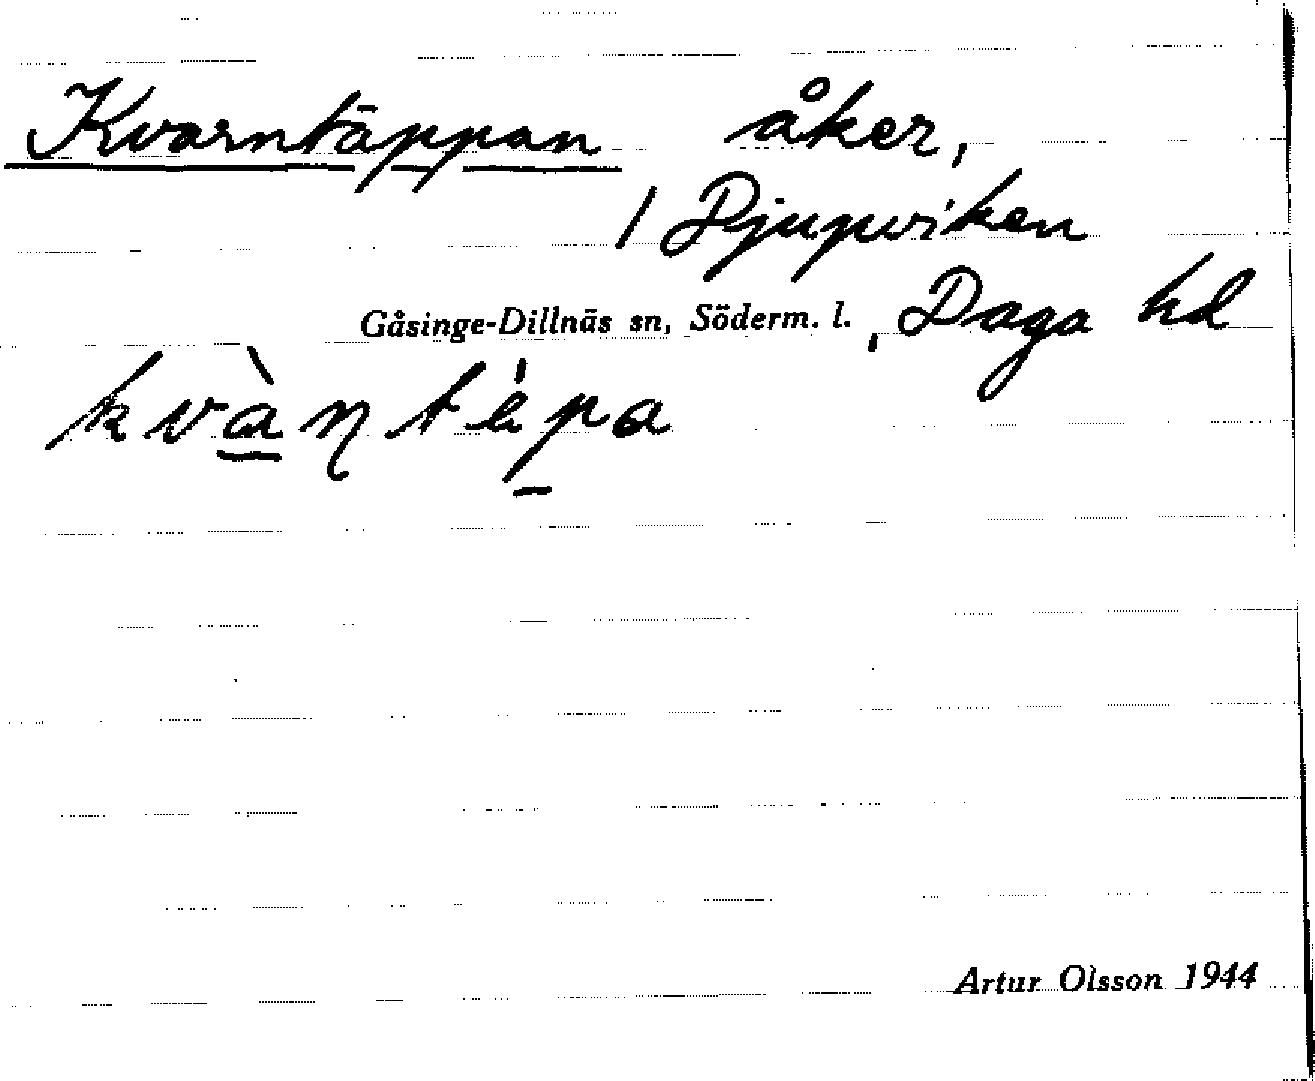 Kvarntäppan åker,
/ Djupviken
Gåsinge-Dillnäs sn, Söderm. l., Daga hd
kvàn̡tépa
Artur Olsson 1944